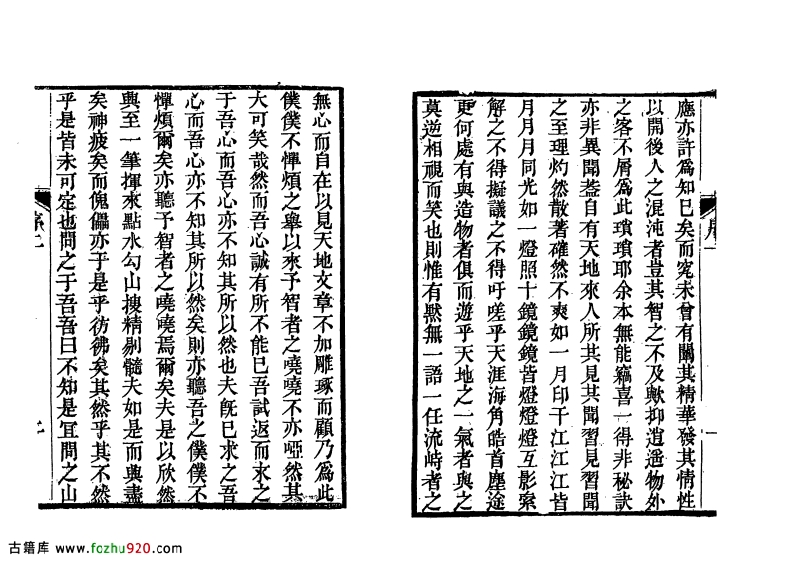 應亦許爲知巳矣而究未曾有闢其精華發其情性
以開後人之混沌者豈其智之不及歟抑逍遥物外
之客不屑爲此瑣瑣耶余本無能竊喜一得非秘訣
亦非異聞葢自有天地來人所共見共聞習見習聞
之至理灼然散著確然不爽如一月印千江江江皆
月月月同光如一燈照十鏡鏡鏡皆燈燈燈互影索
解之不得擬議之不得吁嗟乎天涯海角皓首塵途
更何處有與造物者俱而遊乎天地之一氣者與之
莫逆相視而笑也則惟有默無一語一任流峙者之
序
一
無心而自在以見天地文章不加雕琢而顧乃爲此
僕僕不憚煩之舉以來予智者之嘵嘵不亦啞然其
大可笑哉然而吾心誠有所不能巳吾試返而求之
于吾心而吾心亦不知其所以然也夫旣巳求之吾
心而吾心亦不知其所以然矣則亦聽吾之僕僕不
憚煩爾矣亦聽予智者之嘵嘵焉爾矣夫是以欣然
與至一筆揮來點水勾山搜精剔髓夫如是而與盡
矣神疲矣而傀儡亦于是乎彷彿矣其然乎其不然
乎是皆未可定也問之于吾吾曰不知是宜問之山
序
二
古籍库 www.fozhu920.com